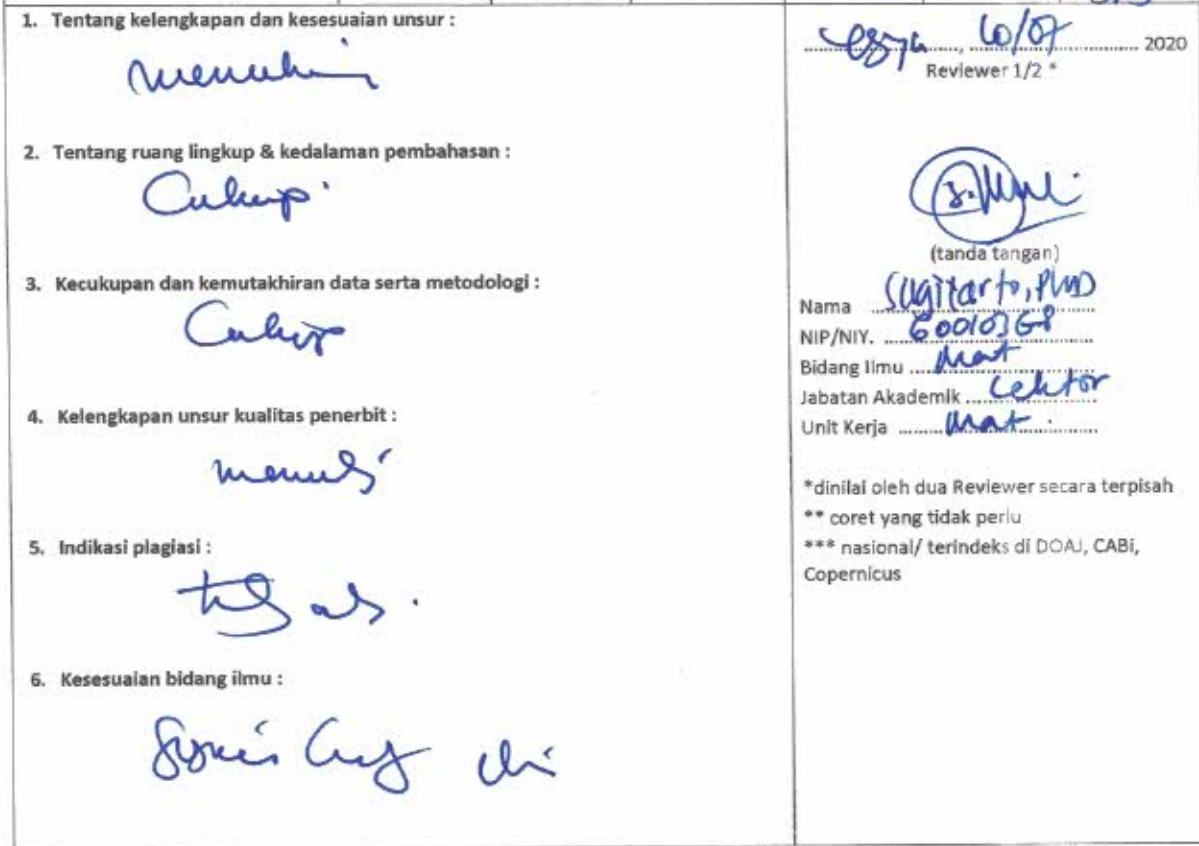 1. Tentang kelengkapan dan kesesuaian unsur :
memenuhi
2. Tentang ruang lingkup & kedalaman pembahasan :
Cukup
3. Kecukupan dan kemutakhiran data serta metodologi :
Cukup
4. Kelengkapan unsur kualitas penerbit :
memenuhi
5. Indikasi plagiasi :
tidak ada.
6. Kesesuaian bidang ilmu :
2020
Reviewer 1/2 *
(tanda tangan)
Nama Sugiyarto, PhD
NIP/NIY.
Bidang Ilmu Mat
Jabatan Akademik Lektor
Unit Kerja Mat
*dinilai oleh dua Reviewer secara terpisah
** coret yang tidak perlu
*** nasional/ terindeks di DOAJ, CABi,
Copernicus